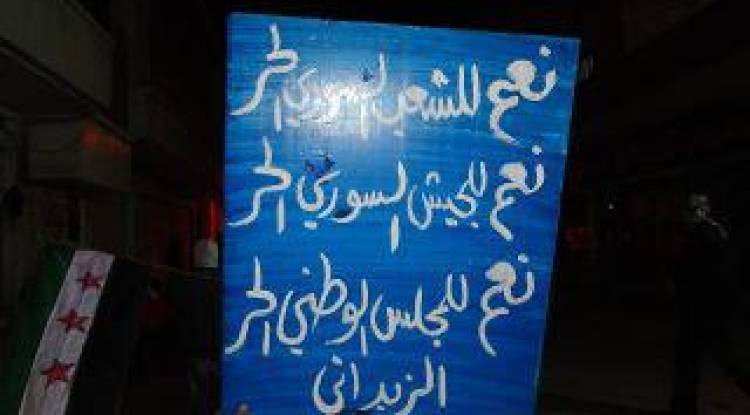 نعم للشعب السوري الحر
نعم للجيش السوري الحر
نعم للمجلس الوطني الحر
الزبداني